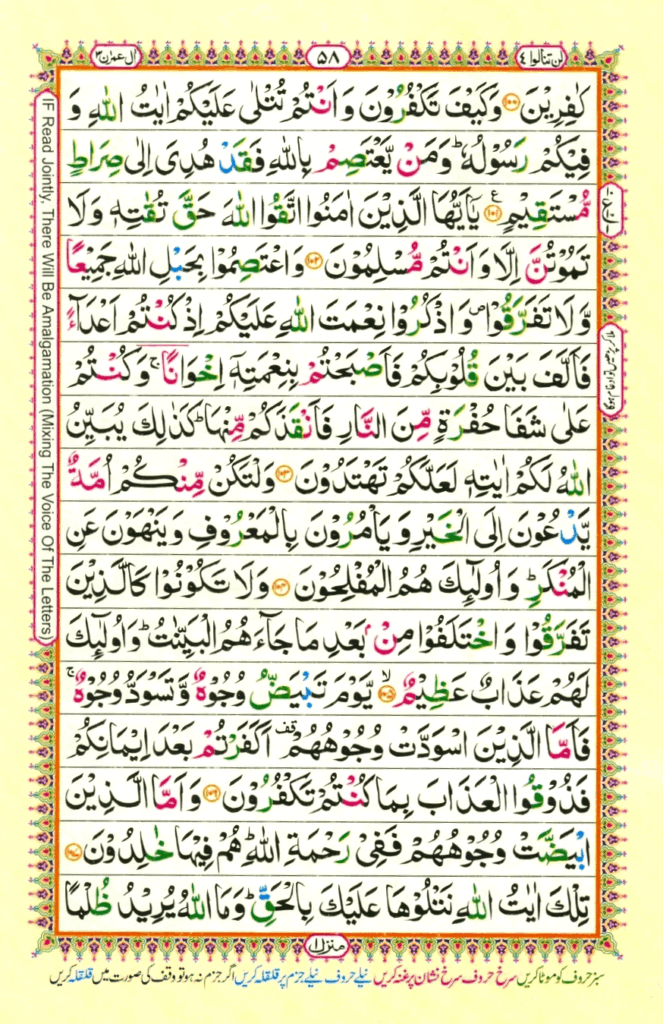 لن تنالوا ٤
٥٨
اٰل عمرٰن ٣
كٰفِرِيْنَ ﴿۱۰۰﴾ وَكَيْفَ تَكْفُرُوْنَ وَاَنْتُمْ تُتْلٰى عَلَيْكُمْ اٰيٰتُ اللّٰهِ وَ
فِيْكُمْ رَسُوْلُهٗ ؕ وَمَنْ يَّعْتَصِمْ بِاللّٰهِ فَقَدْ هُدِىَ اِلٰى صِرَاطٍ
مُّسْتَقِيْمٍ ﴿۱۰۱﴾ ع يٰۤاَيُّهَا الَّذِيْنَ اٰمَنُوا اتَّقُوا اللّٰهَ حَقَّ تُقٰتِهٖ وَلَا
تَمُوْتُنَّ اِلَّا وَاَنْتُمْ مُّسْلِمُوْنَ ﴿۱۰۲﴾ وَاعْتَصِمُوْا بِحَبْلِ اللّٰهِ جَمِيْعًا
وَّلَا تَفَرَّقُوْا ۪ وَاذْكُرُوْا نِعْمَتَ اللّٰهِ عَلَيْكُمْ اِذْ كُنْتُمْ اَعْدَآءً
فَاَلَّفَ بَيْنَ قُلُوْبِكُمْ فَاَصْبَحْتُمْ بِنِعْمَتِهٖۤ اِخْوَانًا ۚ وَكُنْتُمْ
عَلٰى شَفَا حُفْرَةٍ مِّنَ النَّارِ فَاَنْقَذَكُمْ مِّنْهَا ؕ كَذٰلِكَ يُبَيِّنُ
اللّٰهُ لَكُمْ اٰيٰتِهٖ لَعَلَّكُمْ تَهْتَدُوْنَ ﴿۱۰۳﴾ وَلْتَكُنْ مِّنْكُمْ اُمَّةٌ
يَّدْعُوْنَ اِلَى الْخَيْرِ وَيَاْمُرُوْنَ بِالْمَعْرُوْفِ وَيَنْهَوْنَ عَنِ
الْمُنْكَرِ ؕ وَاُولٰٓئِكَ هُمُ الْمُفْلِحُوْنَ ﴿۱۰۴﴾ وَلَا تَكُوْنُوْا كَالَّذِيْنَ
تَفَرَّقُوْا وَاخْتَلَفُوْا مِنْۢ بَعْدِ مَا جَآءَهُمُ الْبَيِّنٰتُ ؕ وَاُولٰٓئِكَ
لَهُمْ عَذَابٌ عَظِيْمٌ ﴿۱۰۵﴾ ۙ يَّوْمَ تَبْيَضُّ وُجُوْهٌ وَّتَسْوَدُّ وُجُوْهٌ ۚ
فَاَمَّا الَّذِيْنَ اسْوَدَّتْ وُجُوْهُهُمْ قف اَكَفَرْتُمْ بَعْدَ اِيْمَانِكُمْ
فَذُوْقُوا الْعَذَابَ بِمَا كُنْتُمْ تَكْفُرُوْنَ ﴿۱۰۶﴾ وَاَمَّا الَّذِيْنَ
ابْيَضَّتْ وُجُوْهُهُمْ فَفِىْ رَحْمَةِ اللّٰهِ ؕ هُمْ فِيْهَا خٰلِدُوْنَ ﴿۱۰۷﴾
تِلْكَ اٰيٰتُ اللّٰهِ نَتْلُوْهَا عَلَيْكَ بِالْحَقِّ ؕ وَمَا اللّٰهُ يُرِيْدُ ظُلْمًا
منزل ۱
IF Read Jointly. There Will Be Amalgamation (Mixing The Voice Of The Letters)
ملا کر پڑھیں تو ادغام ہوگا
سبز حروف کو موٹا کریں سرخ حروف سرخ نشان پر غنہ کریں نیلے حروف نیلے جزم پر قلقلہ کریں اگر جزم نہ ہو تو وقف کی صورت میں قلقلہ کریں